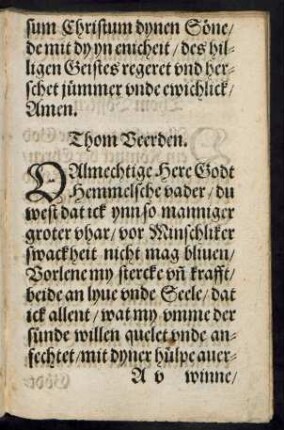 sum Christum dynen Söne/
de mit dy yn enicheit / des hil-
ligen Geistes regeret vnd her-
schet jümmer vnde ewichlick/
Amen.
Thom Veerden.
O Almechtige Here Godt
Hemmelsche vader / du
west dat ick ynn so manniger
groter vhar / vor Minschliker
swackheit nicht mag bliuen/
Vorlene my stercke vñ krafft/
beide an lyue vnde Seele / dat
ick allent / wat my vmme der
sünde willen quelet vnde an-
fechtet / mit dyner hülpe auer-
A v winne/